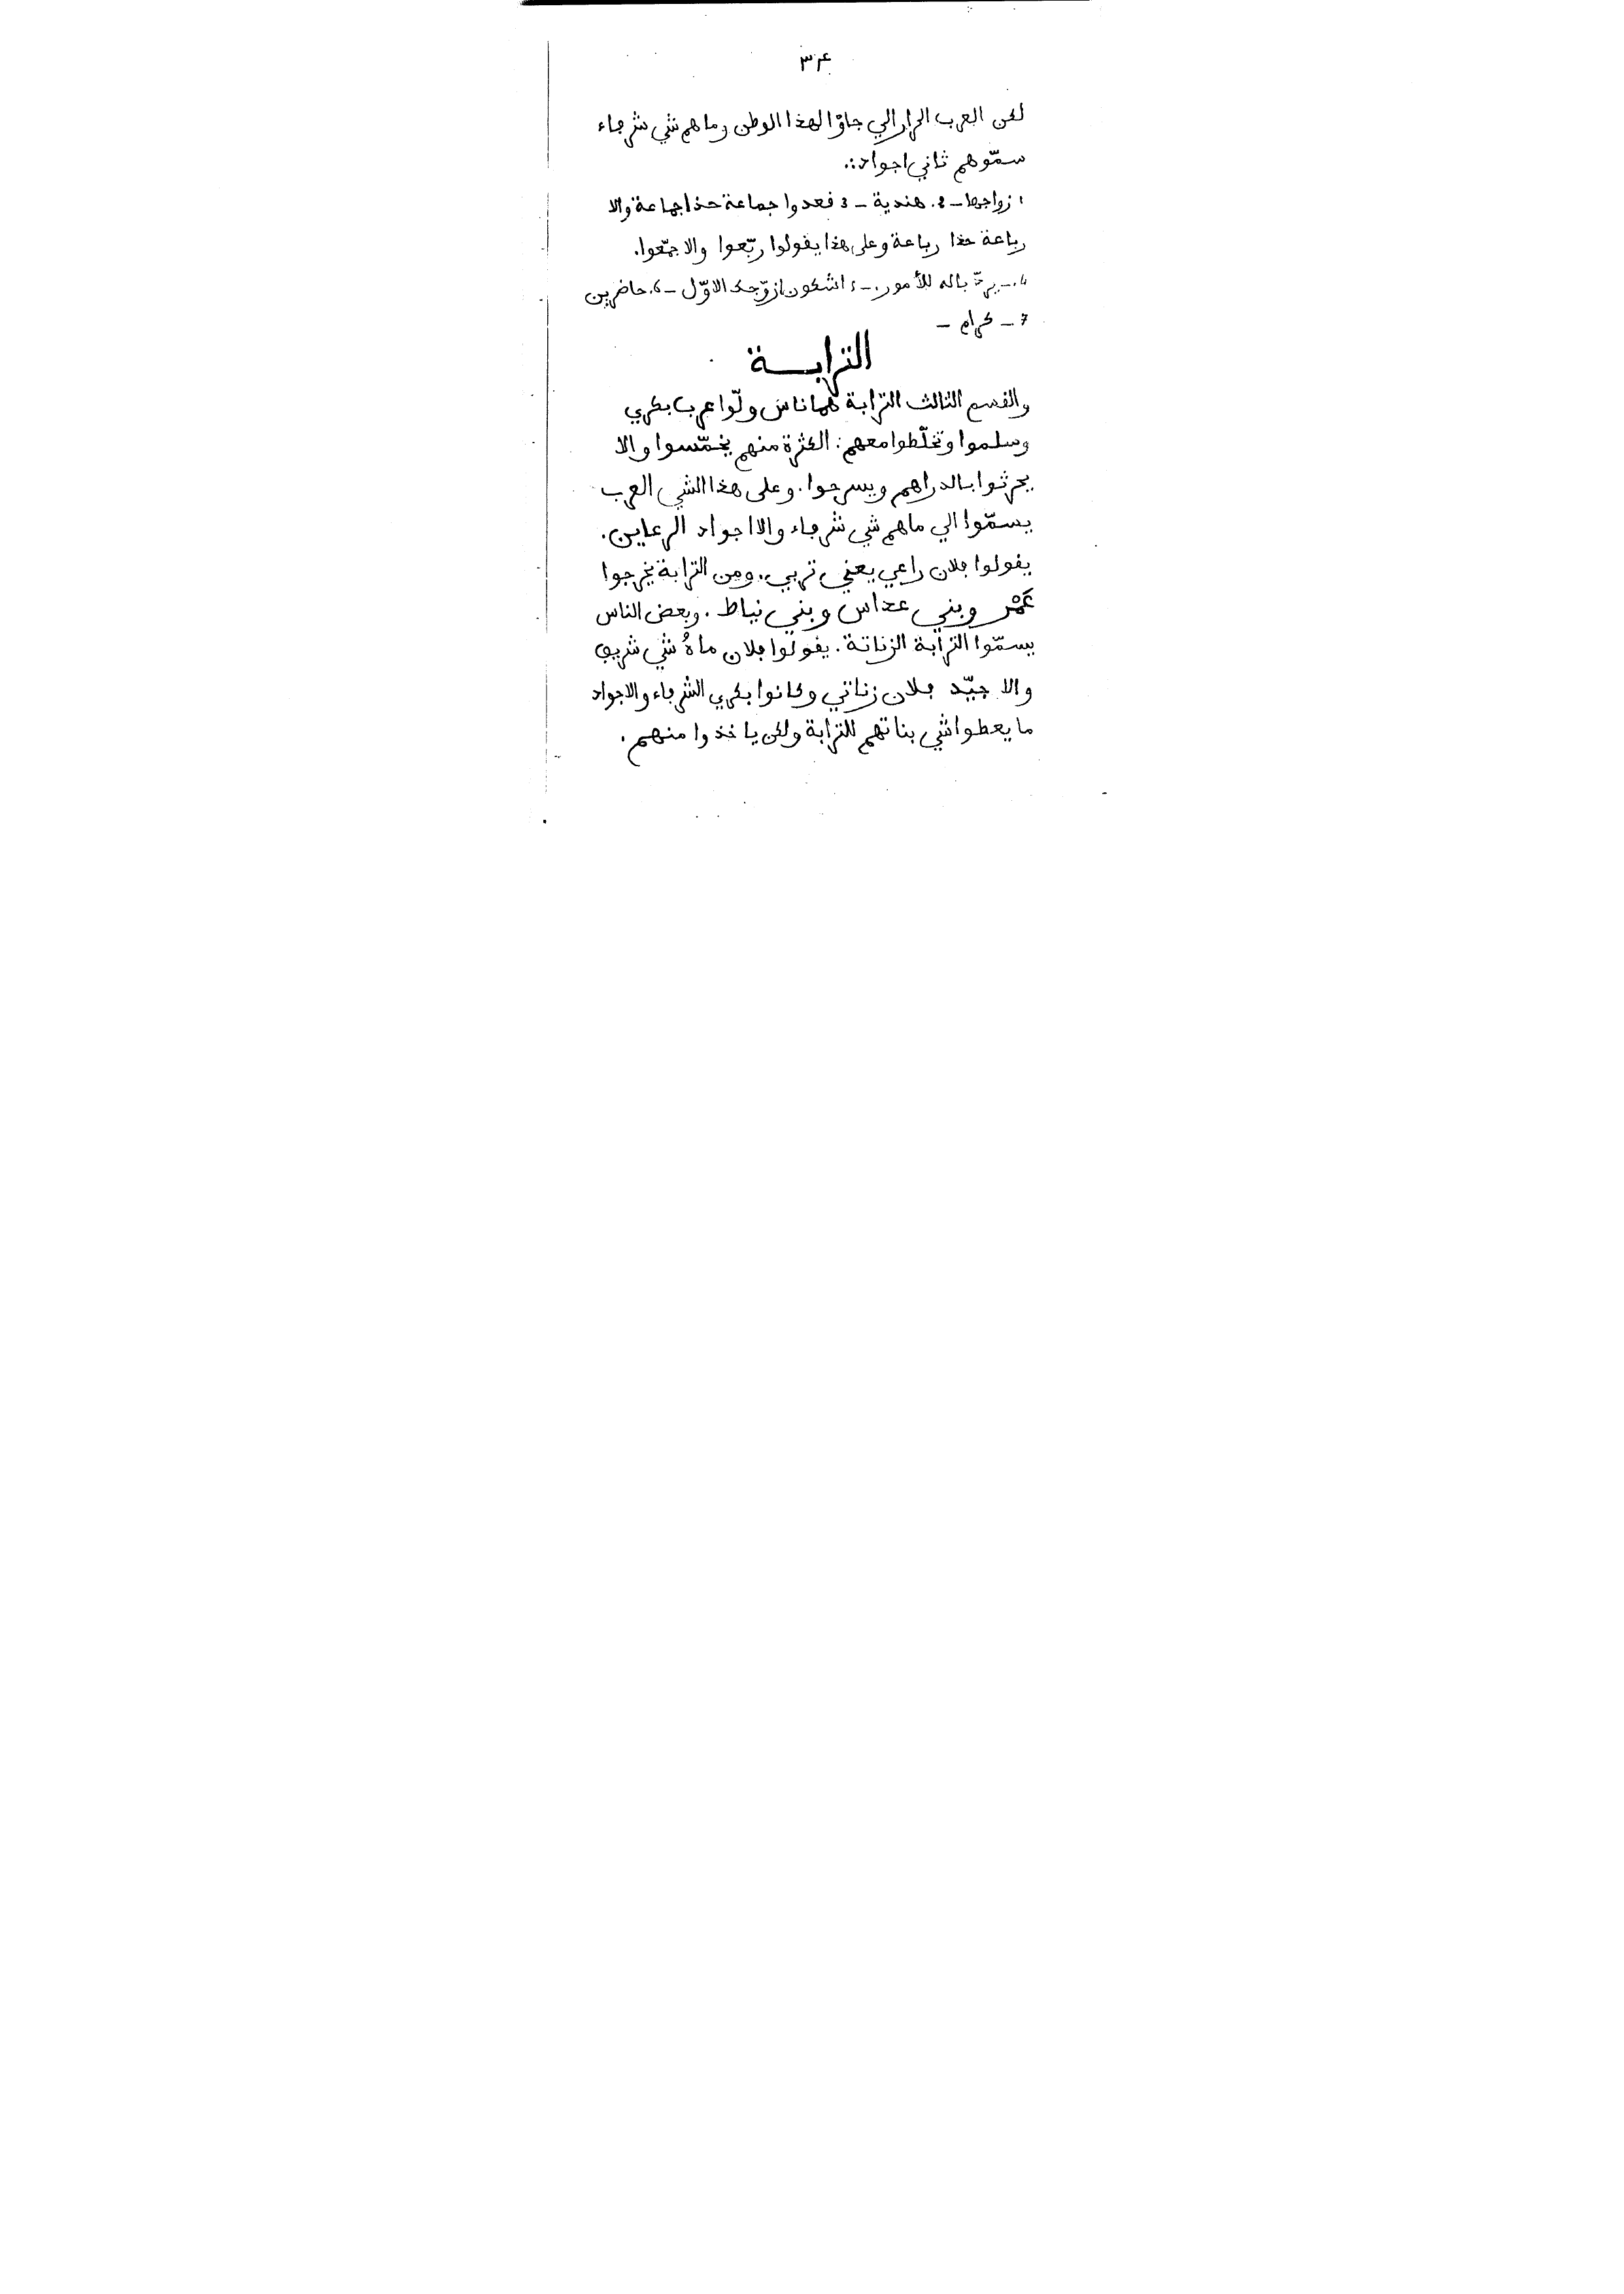 ٣٤
لكن العرب الحرار الي جاوْا لهذا الوطن وما هم شي شرفاء
سمّوهم ثاني اجواد:.
1 زواجها - 2. هندية - 3 فعدوا جماعة حذا جماعة والا
رباعة حذا رباعة وعلى هذا يقولوا ربّعوا والا جمّعوا.
4. - يردّ باله للأمور. - 5 اشكون ازوّجك الاوّل - 6. حاضرين
7 - كرام -
الترابــة
والقسم الثالث الترابة هما ناس ولّوا عرب بكري
وسلموا وتخلّطوا معهم: الكثرة منهم يخمّسوا والا
يحرثوا بالدراهم ويسرحوا. وعلى هذا الشي العرب
يسمّوا الي ما هم شي شرفاء والا اجواد الرعاين.
يقولوا فلان راعي يعني تربي. ومن الترابة يخرجوا
عَمْر وبني عداس وبني نياط. وبعض الناس
يسمّوا الترابة الزناتة. يقولوا فلان ماهُ شي شريف
والا جيّد فلان زناتي وكانوا بكري الشرفاء والاجواد
ما يعطوا شي بناتهم للترابة ولكن ياخذوا منهم.